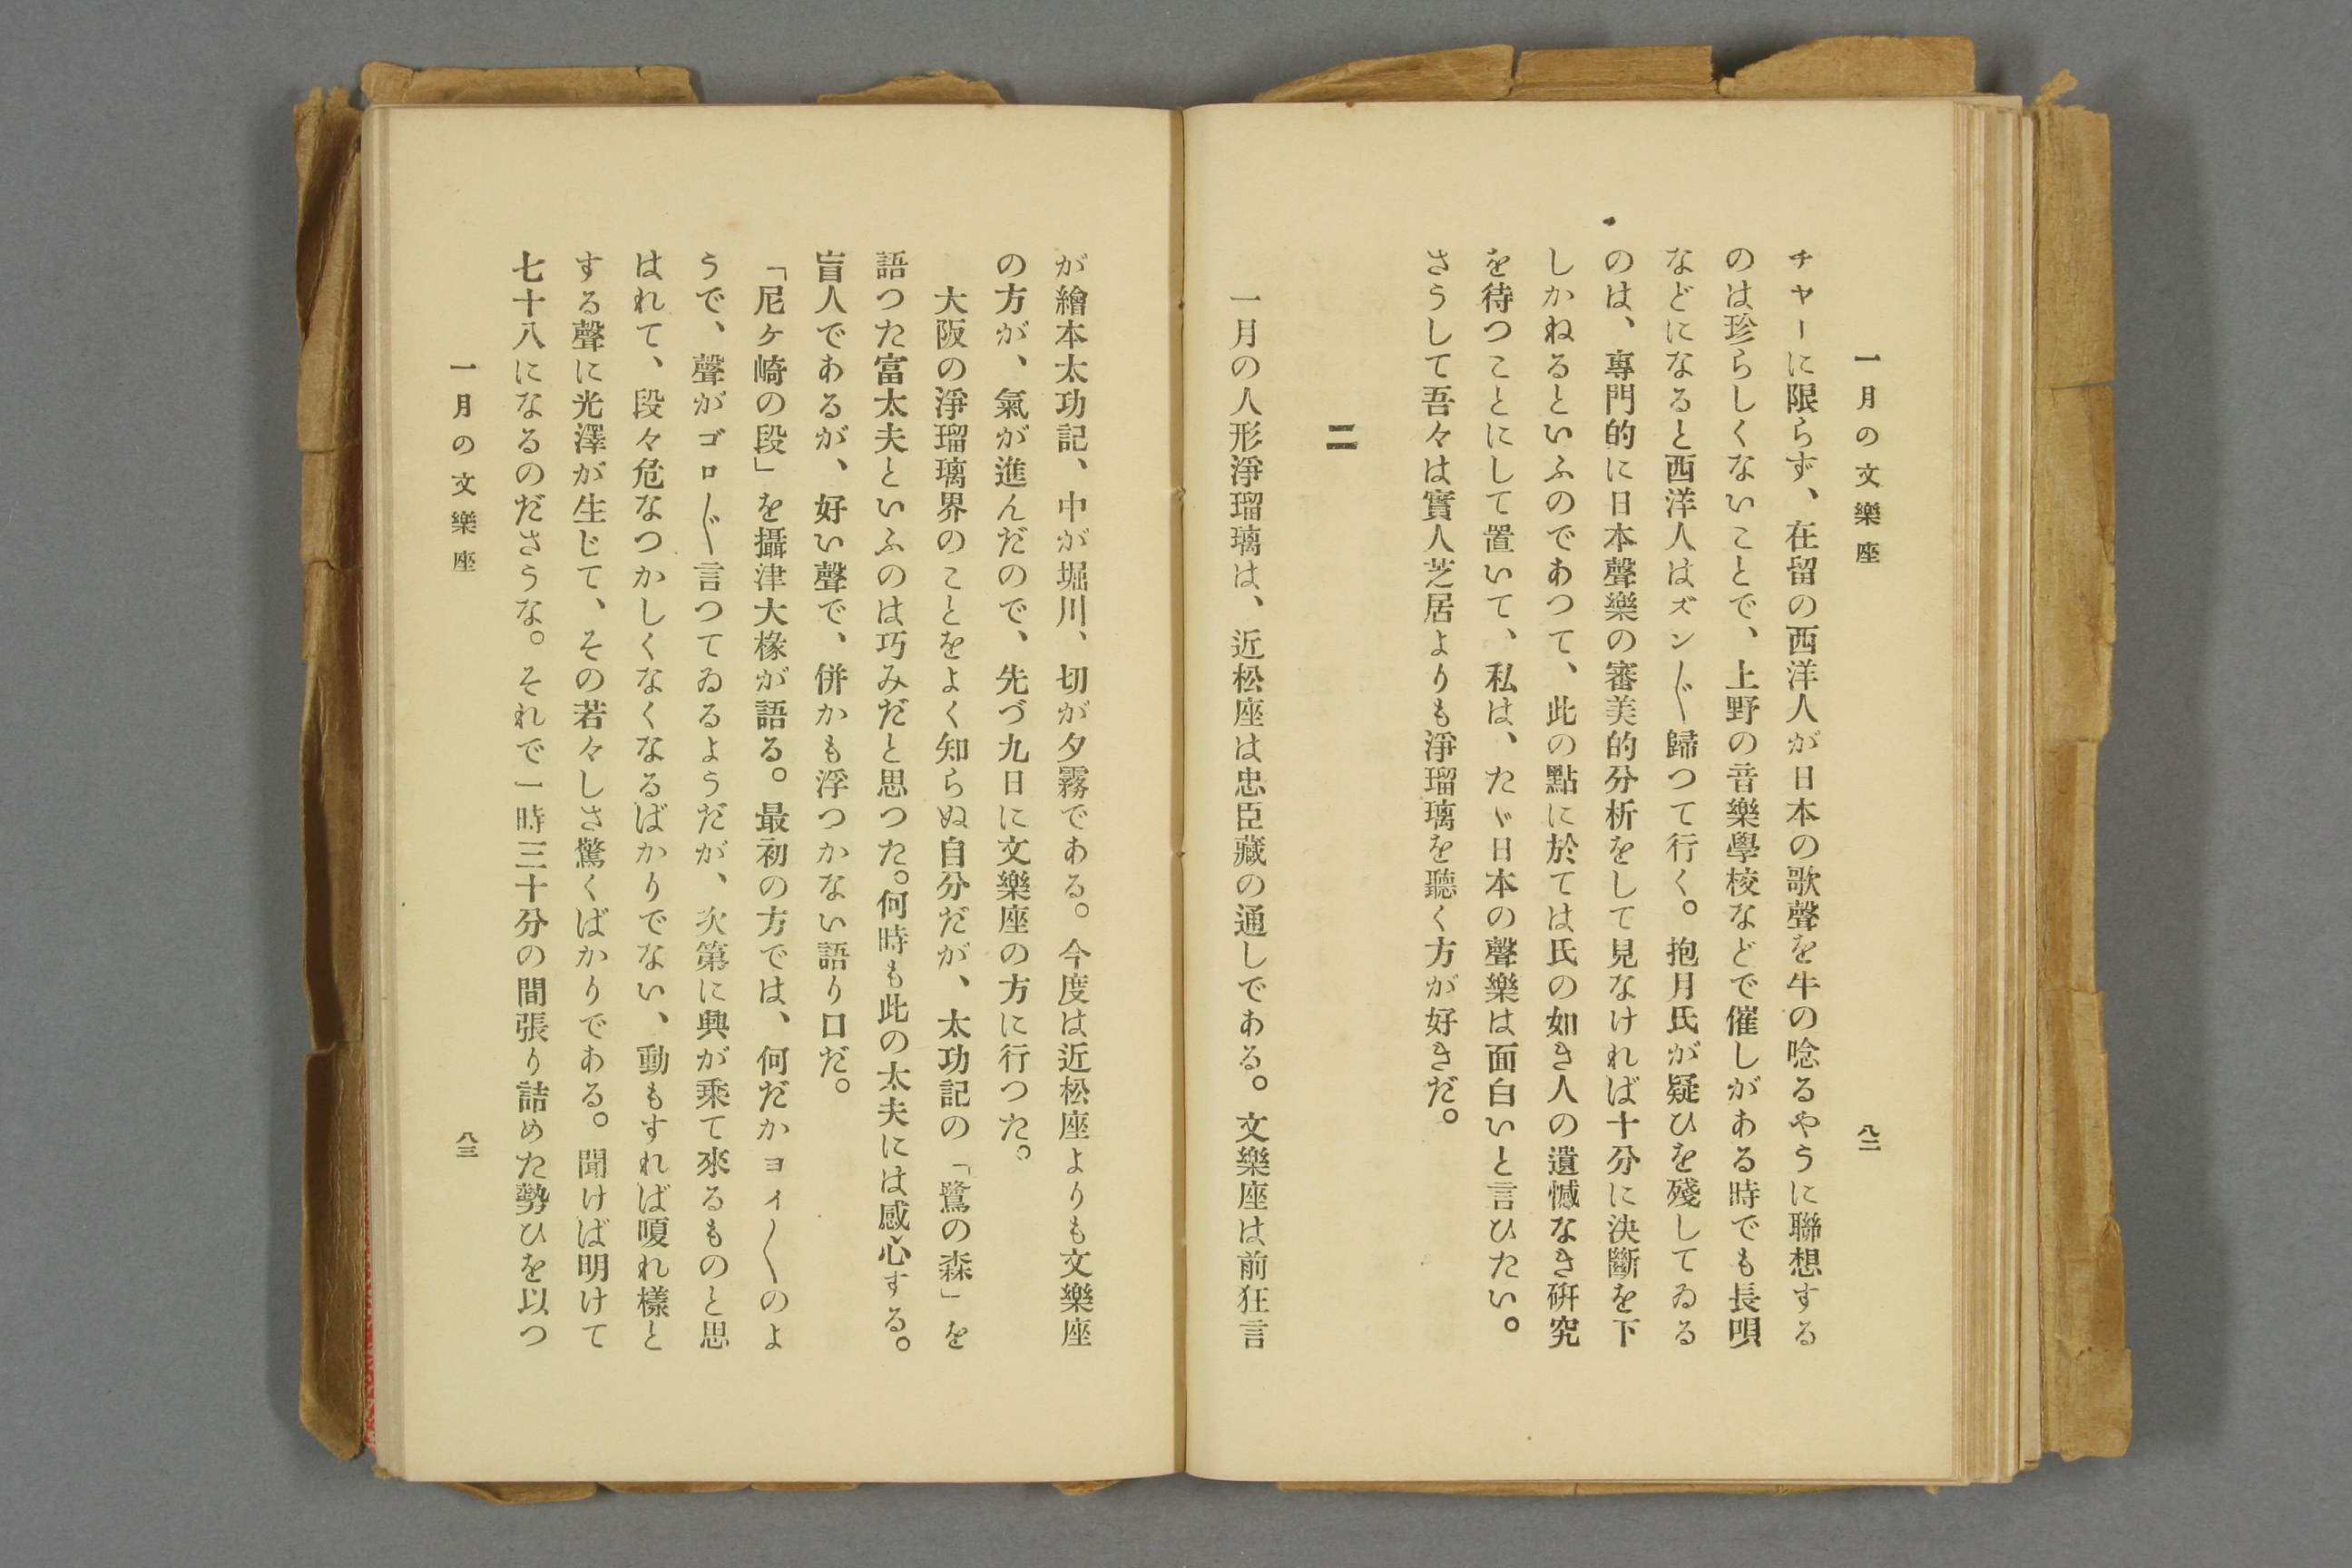 一月の文樂座
八二
チャーに限らず、在留の西洋人が日本の歌聲を牛の唸るやうに聯想する
のは珍らしくないことで、上野の音樂學校などで催しがある時でも長唄
などになると西洋人はズン〴〵歸つて行く。抱月氏が疑ひを殘してゐる
のは、專門的に日本聲樂の審美的分析をして見なければ十分に決斷を下
しかねるといふのであつて、此の點に於ては氏の如き人の遺憾なき硏究
を待つことにして置いて、私は、たゞ日本の聲樂は面白いと言ひたい。
さうして吾々は實人芝居よりも淨瑠璃を聽く方が好きだ。
二
一月の人形淨瑠璃は、近松座は忠臣藏の通しである。文樂座は前狂言
が繪本太功記、中が堀川、切が夕霧である。今度は近松座よりも文樂座
の方が、氣が進んだので、先づ九日に文樂座の方に行つた。
大阪の淨瑠璃界のことをよく知らぬ自分だが、太功記の「鷺の森」を
語つた富太夫といふのは巧みだと思つた。何時も此の太夫には感心する。
盲人であるが、好い聲で、併かも浮つかない語り口だ。
「尼ヶ崎の段」を攝津大椽が語る。最初の方では、何だかヨイ〳〵のよ
うで、聲がゴロ〴〵言つてゐるようだが、次第に興が乗て來るものと思
はれて、段々危なつかしくなくなるばかりでない、動もすれば嗄れ樣と
する聲に光澤が生じて、その若々しさ驚くばかりである。聞けば明けて
七十八になるのださうな。それで一時三十分の間張り詰めた勢ひを以つ
一月の文樂座
八三